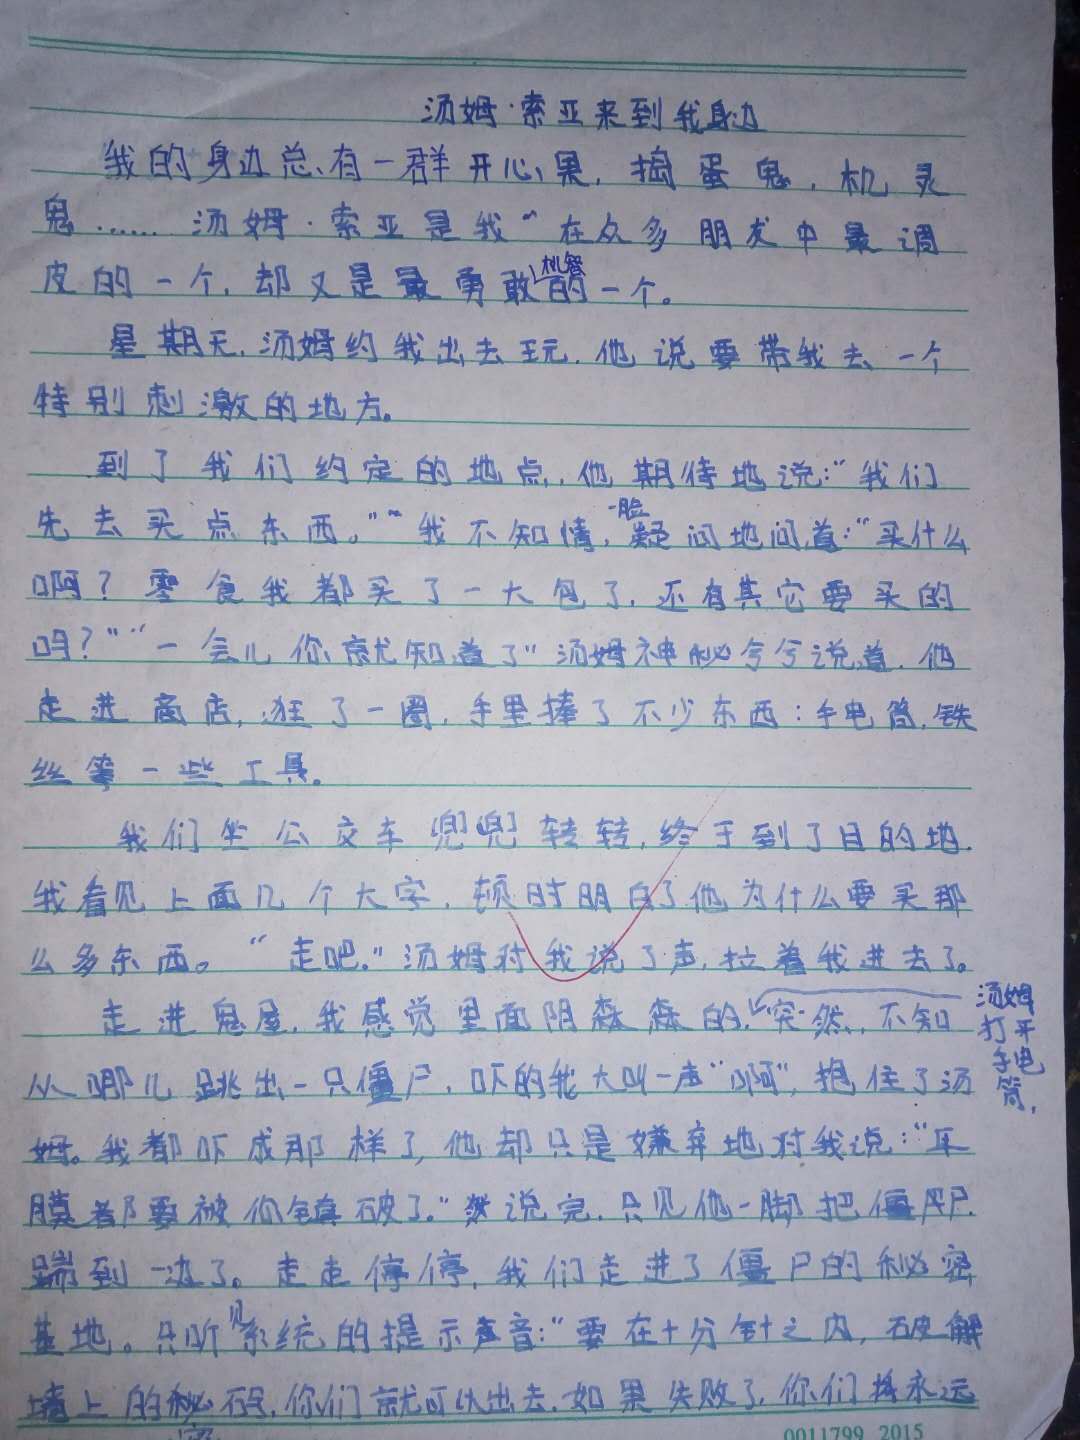 汤姆·索亚来到我身边
我的身边总有一群开心果,捣蛋鬼,机灵
鬼……汤姆·索亚是我在众多朋友中最调
皮的一个,却又是最勇敢机智的一个。
星期天,汤姆约我出去玩,他说要带我去一个
特别刺激的地方。
到了我们约定的地点,他期待地说:“我们
先去买点东西。”我不知情,一脸疑问地问道:“买什么
啊?零食我都买了一大包了,还有其它要买的
吗?”“一会儿你就知道了”汤姆神秘兮兮说道,他
走进商店,逛了一圈,手里捧了不少东西:手电筒,铁
丝等一些工具。
我们坐公交车兜兜转转,终于到了目的地.
我看见上面几个大字,顿时明白了他为什么要买那
么多东西。“走吧。”汤姆对我说了声,拉着我进去了。
走进鬼屋,我感觉里面阴森森的,汤姆打开手电筒,突然,不知
从哪儿跳出一只僵尸,吓的我大叫一声“啊”,抱住了汤
姆。我都吓成那样了,他却只是嫌弃地对我说:“耳
膜都要被你镇破了。”说完,只见他一脚把僵尸
踹到一边了。走走停停,我们走进了僵尸的秘密
基地。只听见系统的提示声音:“要在十分钟之内,破解
墙上的密码,你们就可以出去,如果失败了,你们将永远
0011799 2015